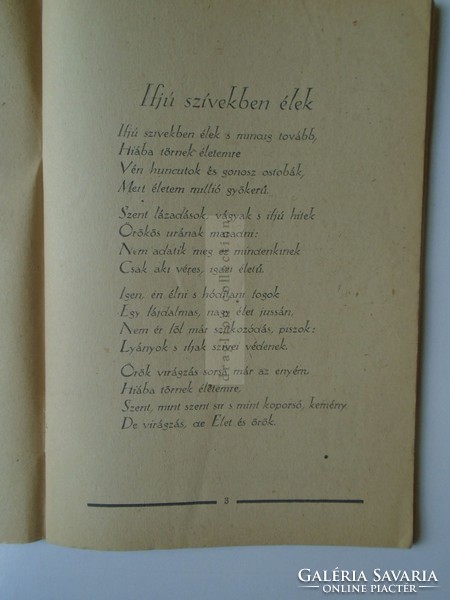 Ifjú szívekben élek
Ifjú szivekben élek s mindig tovább,
Hiába törnek életemre
Vén huncutok és gonosz ostobák,
Mert életem millió gyökerű.
Szent lázadások, vágyak s ifjú hitek
Örökös urának maradni:
Nem adatik meg ez mindenkinek
Csak aki véres, igaz életű.
Igen, én élni s hódítani fogok
Egy fájdalmas, nagy élet jussán,
Nem ér föl már szitkozódás, piszok:
Lyányok s ifjak szivei védenek.
Örök virágzás sorsa már az enyém.
Hiába törnek életemre,
Szent, mint szent sír s mint koporsó, kemény
De virágzás, de Élet és örök.
3
GALÉRIA SAVARIA
ONLINE PIACTÉR